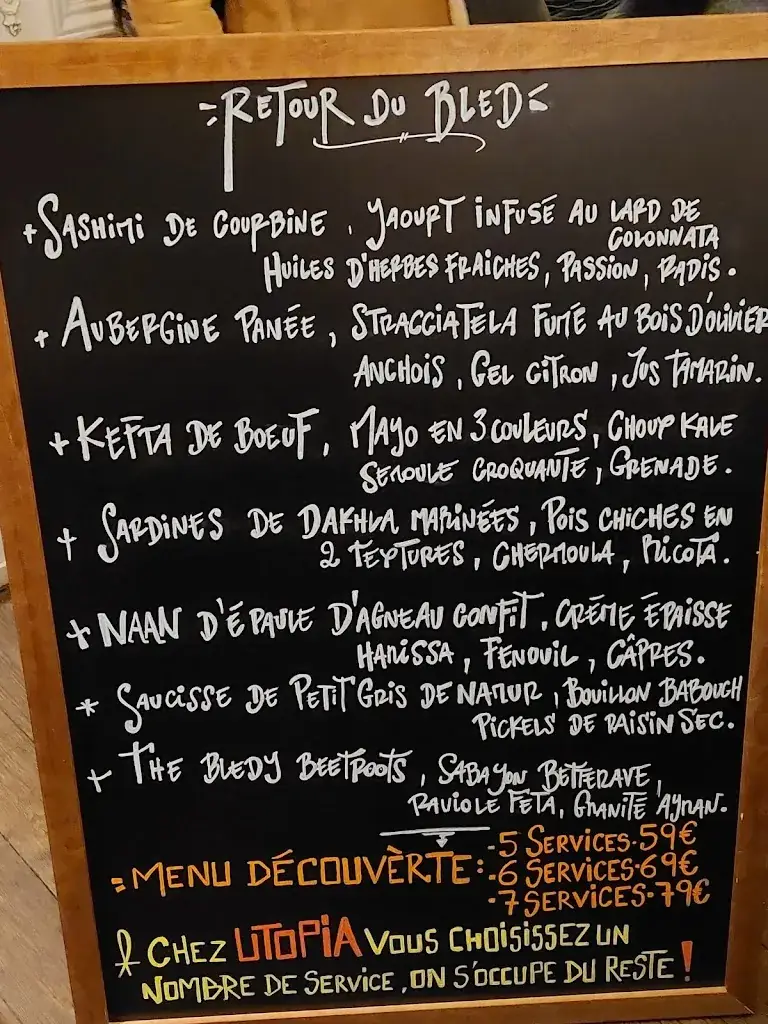 RETOUR DU BLED
+ SASHIMI DE COURBINE, YAOURT INFUSÉ AU LARD DE
COLONNATA
HUILES D'HERBES FRAICHES, PASSION, RADIS.
+ AUBERGINE PANÉE, STRACCIATELA FUMÉ AU BOIS D'OLIVIER
ANCHOIS, GEL CITRON, JUS TAMARIN.
+ KEFTA DE BOEUF, MAYO EN 3 COULEURS, CHOUX KALE
SEMOULE CROQUANTE, GRENADE.
+ SARDINES DE DAKHLA MARINÉES, POIS CHICHES EN
2 TEXTURES, CHERMOULA, RICOTA.
+ NAAN D'ÉPAULE D'AGNEAU CONFIT, CRÉME ÉPAISSE
HARISSA, FENOUIL, CÂPRES.
* SAUCISSE DE PETIT GRIS DE NAMUR, BOUILLON BABOUCH
PICKELS DE RAISIN SEC.
+ THE BLEDY BEETROOTS, SABAYON BETTERAVE,
RAVIOLE FETA, GRANITÉ AYRAN.
= MENU DÉCOUVÈRTE:
-5 SERVICES·59€
-6 SERVICES·69€
-7 SERVICES·79€
CHEZ UTOPIA VOUS CHOISISSEZ UN
NOMBRE DE SERVICE, ON S'OCCUPE DU RESTE!